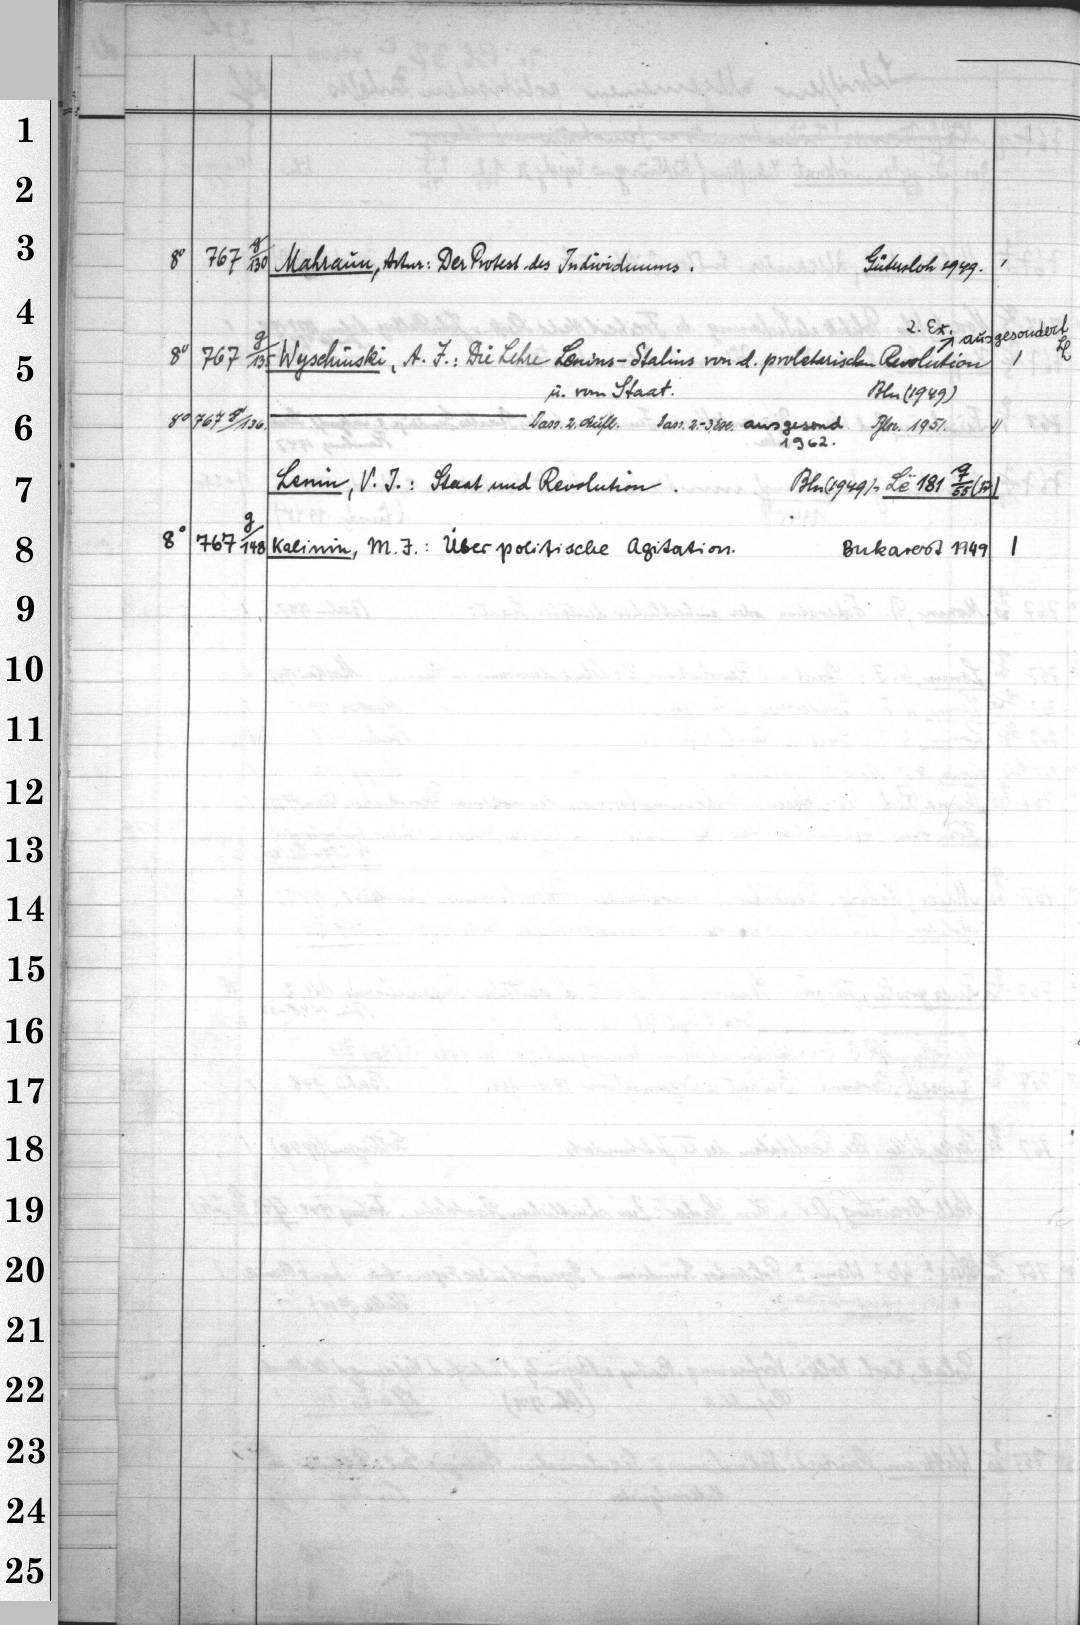 1
2
3
8° 767 g/130 Mahraun, Artur: Der Protest des Individuums. Gütersloh 1949. 1
4
2. Ex. ausgesondert
5
8° 767 g/135 Wyschinski, A. J.: Die Lehre Lenins-Stalins von d. proletarischen Revolution 1
u. vom Staat. Bln (1949)
6
8° 767 g/136. Dass. 2. Aufl. Dass. 2.-3. Ex. ausgesond Bln. 1951. 11
1962.
7
Lenin, V. J.: Staat und Revolution. Bln (1949). Lë 181 g/55 (57)
8
8° 767 g/148 Kalinin, M. J.: Über politische Agitation. Bukarest 1949 1
9
10
11
12
13
14
15
16
17
18
19
20
21
22
23
24
25